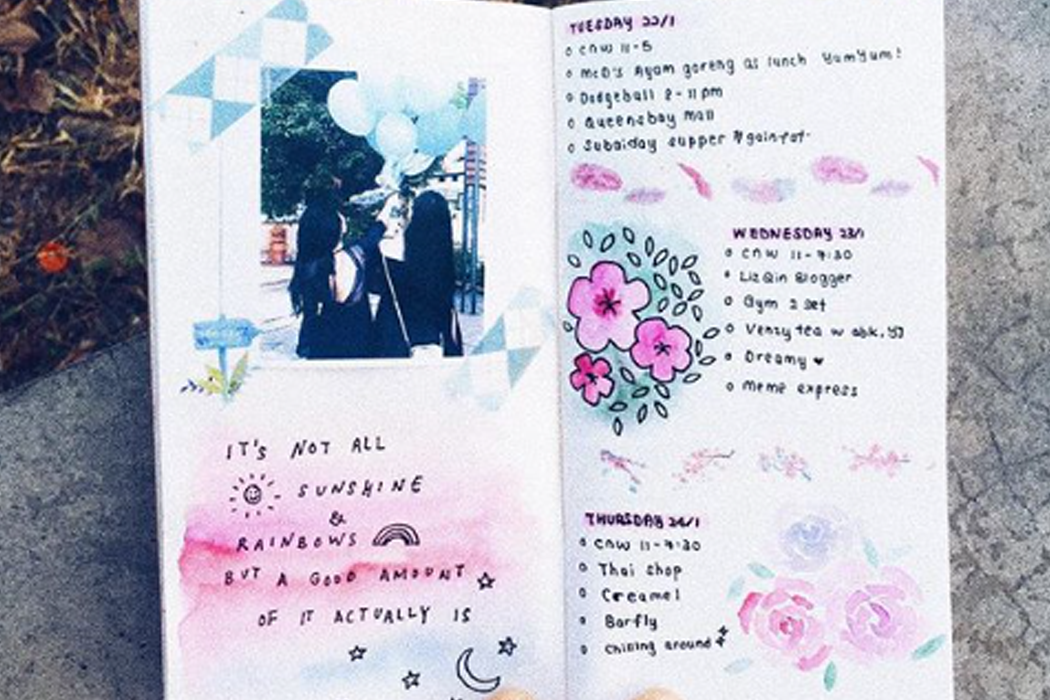 IT'S NOT ALL
SUNSHINE
&
RAINBOWS
BUT A GOOD AMOUNT
OF IT ACTUALLY IS
TUESDAY 22/1
CNW 11-5
McD's Ayam goreng as lunch YumYum!
Dodgeball 8-11 pm
Queensbay Mall
Subaiday supper #gainfat
WEDNESDAY 23/1
CNW 11-7:30
LizQin Blogger
Gym 2 set
Venzy tea w abk, YJ
Dreamy
Meme express
THURSDAY 24/1
CNW 11-7:30
Thai shop
Creamel
Barfly
Chilling around